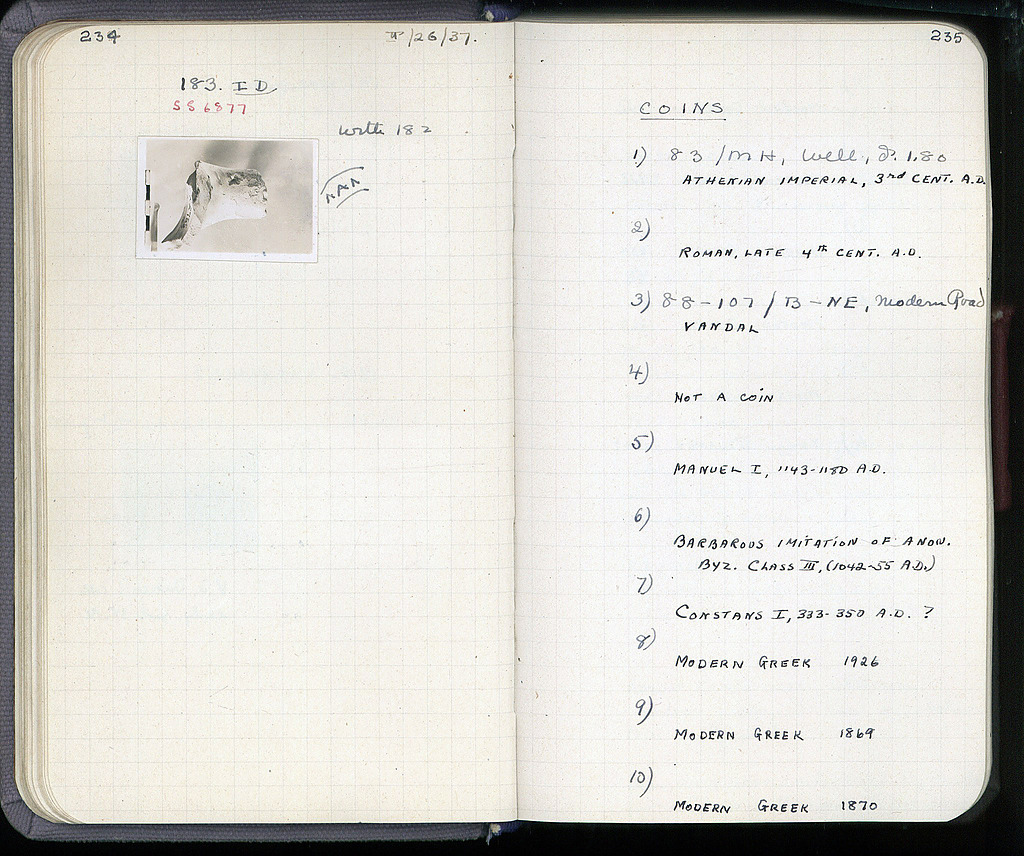 234
IV/26/37.
183. ID
SS6877
with 182
KAN
235
COINS
1) 83/MH, Well, d. 1.80
ATHENIAN IMPERIAL, 3rd CENT. A.D.
2)
ROMAN, LATE 4th CENT. A.D.
3) 88-107/B-NE, Modern Road
VANDAL
4)
NOT A COIN
5)
MANUEL I, 1143-1180 A.D.
6)
BARBAROUS IMITATION OF ANON.
BYZ. CLASS III, (1042-55 A.D.)
7)
CONSTANS I, 333-350 A.D. ?
8)
MODERN GREEK 1926
9)
MODERN GREEK 1869
10)
MODERN GREEK 1870